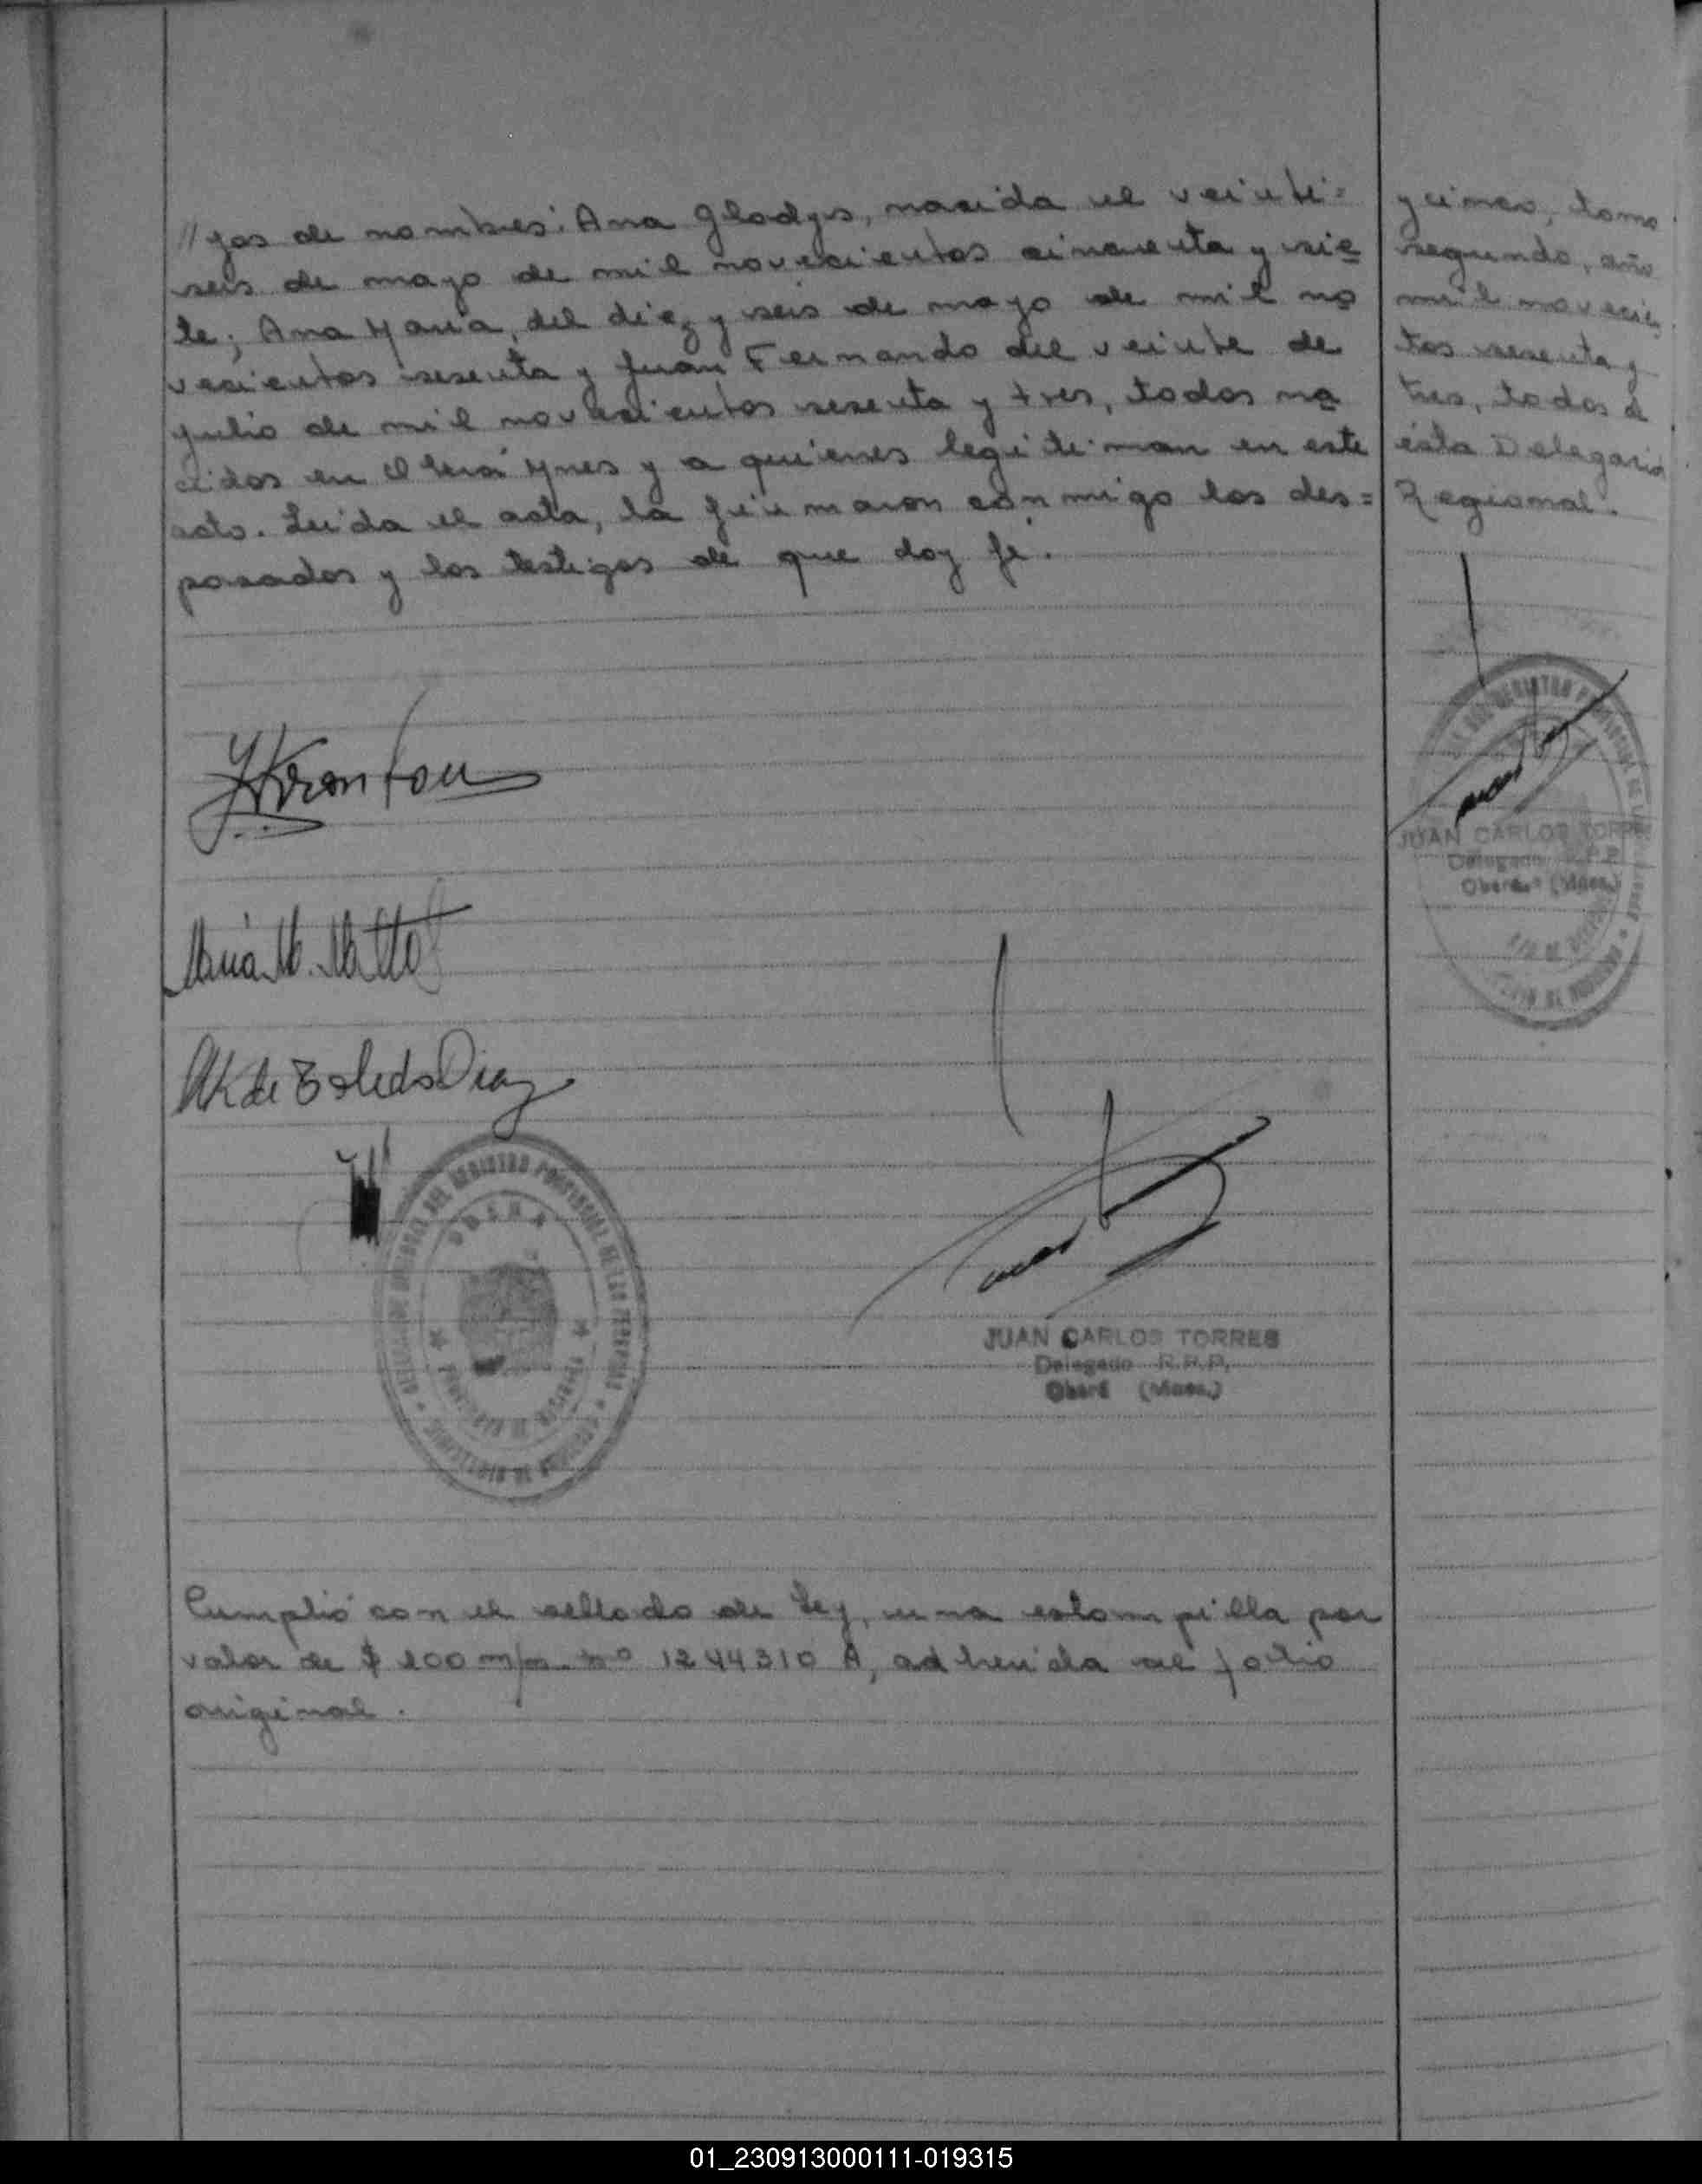 //jos de nombres: Ana Gladys, nacida el veinti=
seis de mayo de mil novecientos cincuenta y sie
te; Ana María, del diez y seis de mayo de mil no
vecientos sesenta y Juan Fernando del veinte de
julio de mil novecientos sesenta y tres, todos na
cidos en Oberá Mnes y a quienes legitiman en este
acto. Leída el acta, la firmaron conmigo los des=
posados y los testigos de que doy fé.
María M. Matto
AK de Toledo Diaz
DELEGACION REGIONAL DEL REGISTRO PROVINCIAL DE LAS PERSONAS
OBERA
PROVINCIA DE MISIONES
JUAN CARLOS TORRES
Delegado R.P.P.
Oberá (Mnes.)
Cumplió con el sellado de Ley, una estampilla por
valor de $ 200 m/n. Nº 1244310 A, adherida al folio
original.
y cinco, tomo
segundo, año
mil novecien
tos sesenta y
tres, todos de
ésta Delegación
Regional.
JUAN CARLOS TORRES
Delegado R.P.P.
Oberá (Mnes.)
01_230913000111-019315